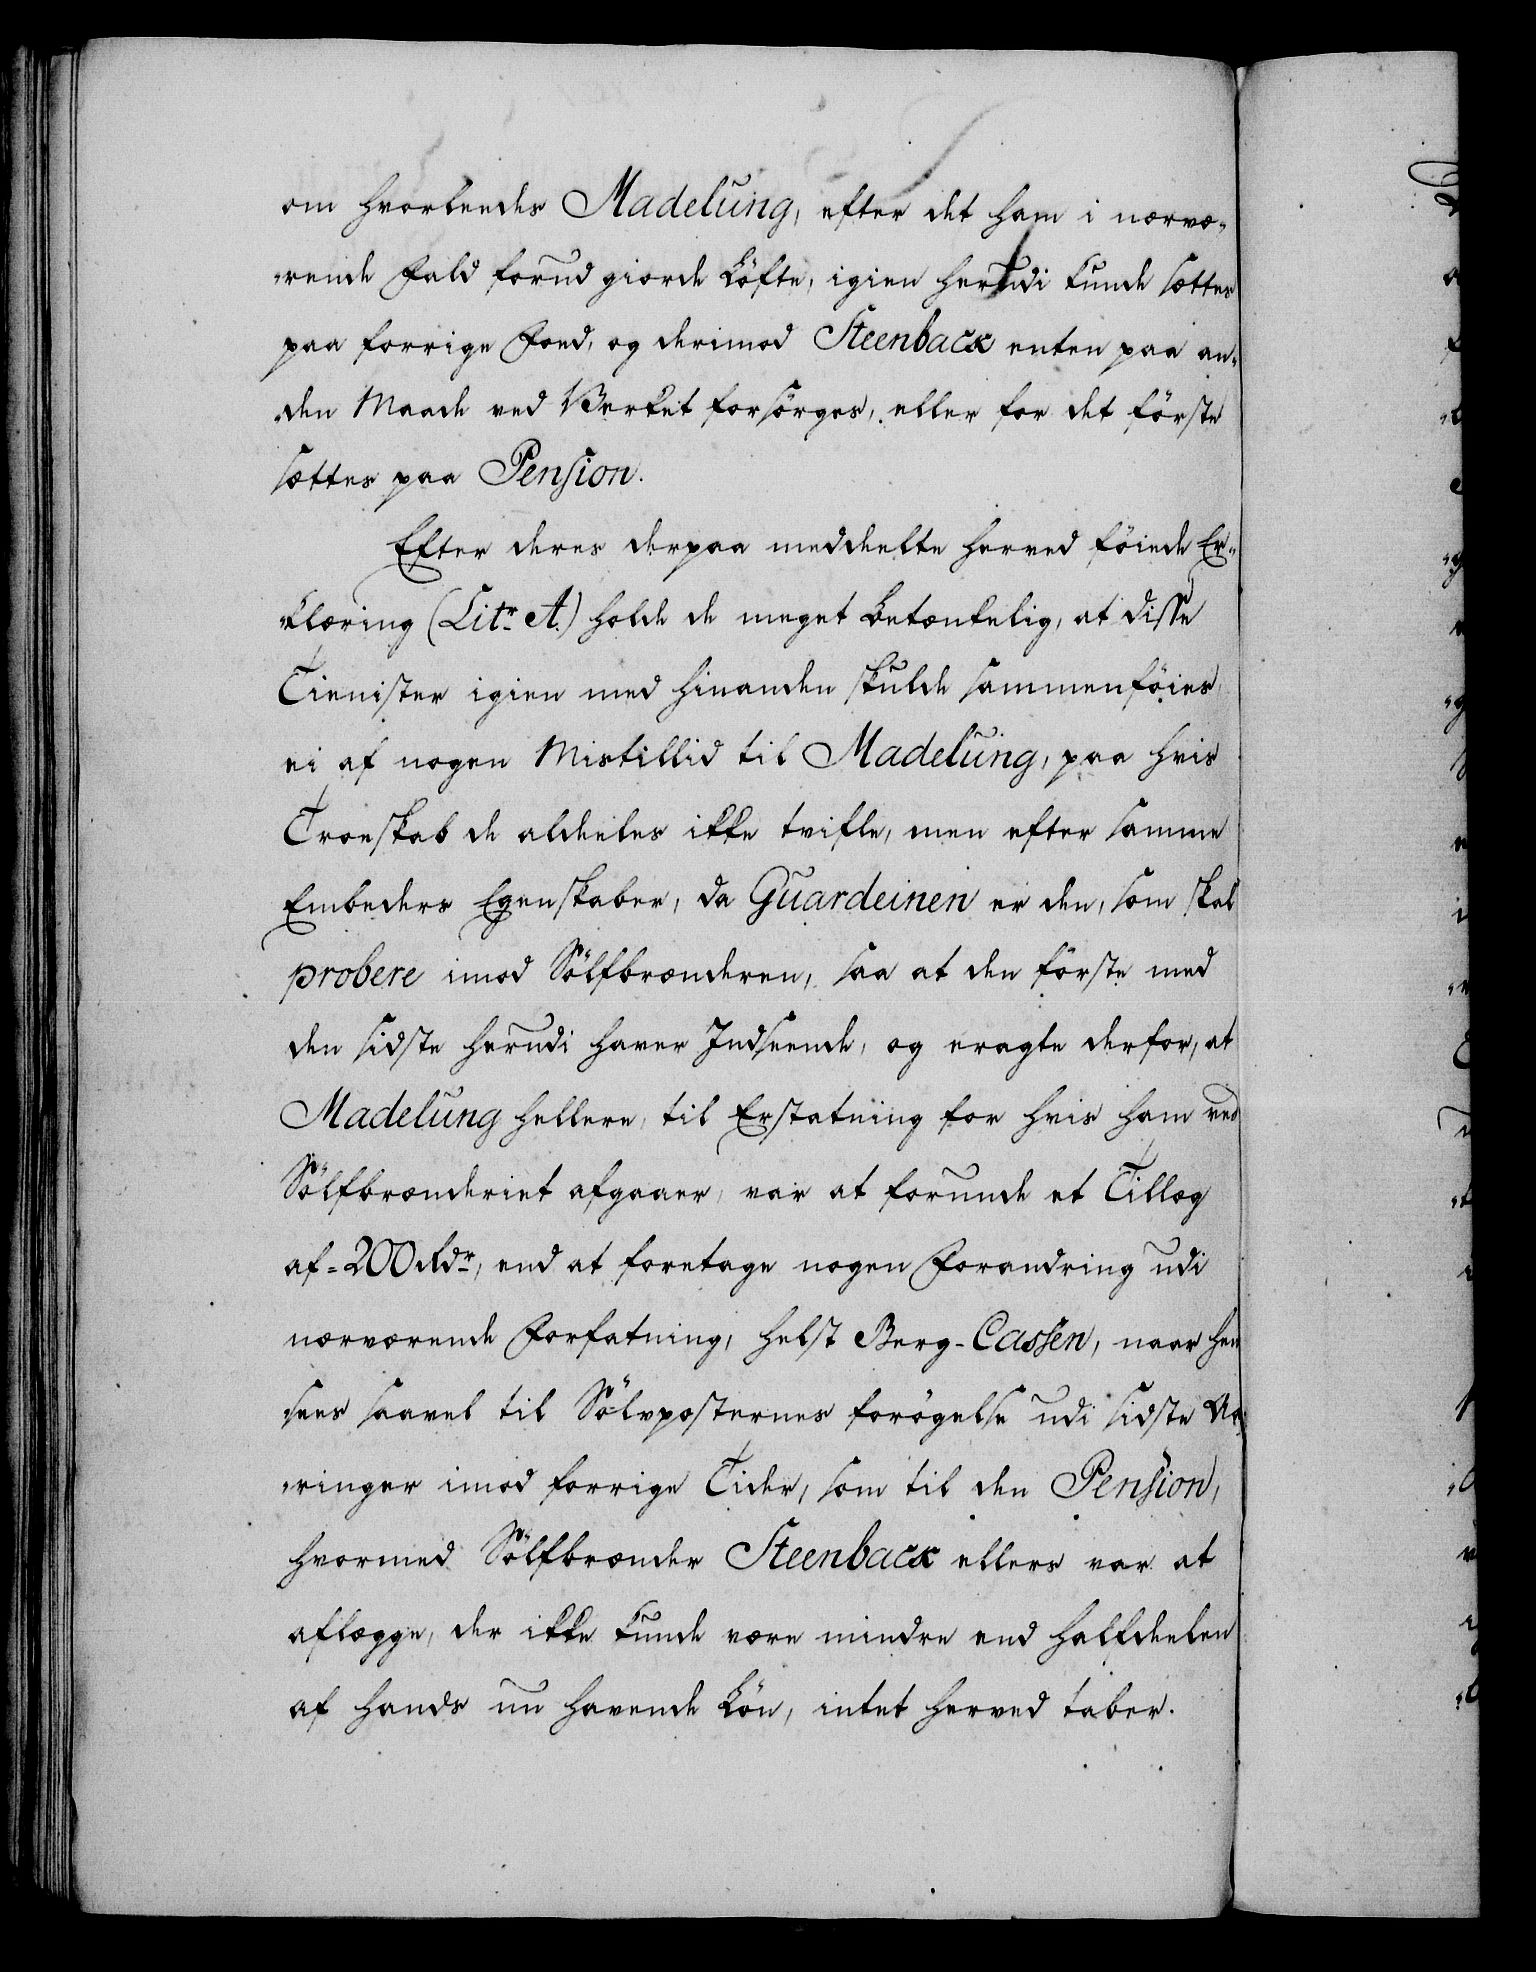 om hvorledes Madelung, efter det ham i nærvæ-
-rende Fald forud giorde Löfte, igien herudi kunde sættes
paa forrige Foed, og derimod Steenback enten paa an-
-den Maade ved Verket forsörges, eller for det förste
sættes paa Pension.
Efter deres derpaa meddeelte herved föiede Er-
-klæring (Litr A.) holde de meget betænkelig, at disse
Tienister igien med hinanden skulde sammenföies,
ei af nogen Mistillid til Madelung, paa hvis
Troeskab de aldeeles ikke tvifle, men efter samme
Embeders Egenskaber, da Guardeinen er den, som skal
probere imod Sölfbrænderen, saa at den förste med
den sidste herudi haver Indseende, og eragte derfor, at
Madelung hellere, til Erstatning for hvis ham ved
Sölfbrænderiet afgaaer, var at forunde et Tillæg
af = 200 Rdr, end at foretage nogen Forandring udi
nærværende Forfatning, helst Berg-Cassen, naar hen
sees saavel til Sölvposternes forögelse udi sidste Aa-
-ringer imod forrige Tider, som til den Pension,
hvormed Sölfbrænder Steenback ellers var at
aflægge, der ikke kunde være mindre end halfdeelen
af hands nu havende Lön, intet herved taber.